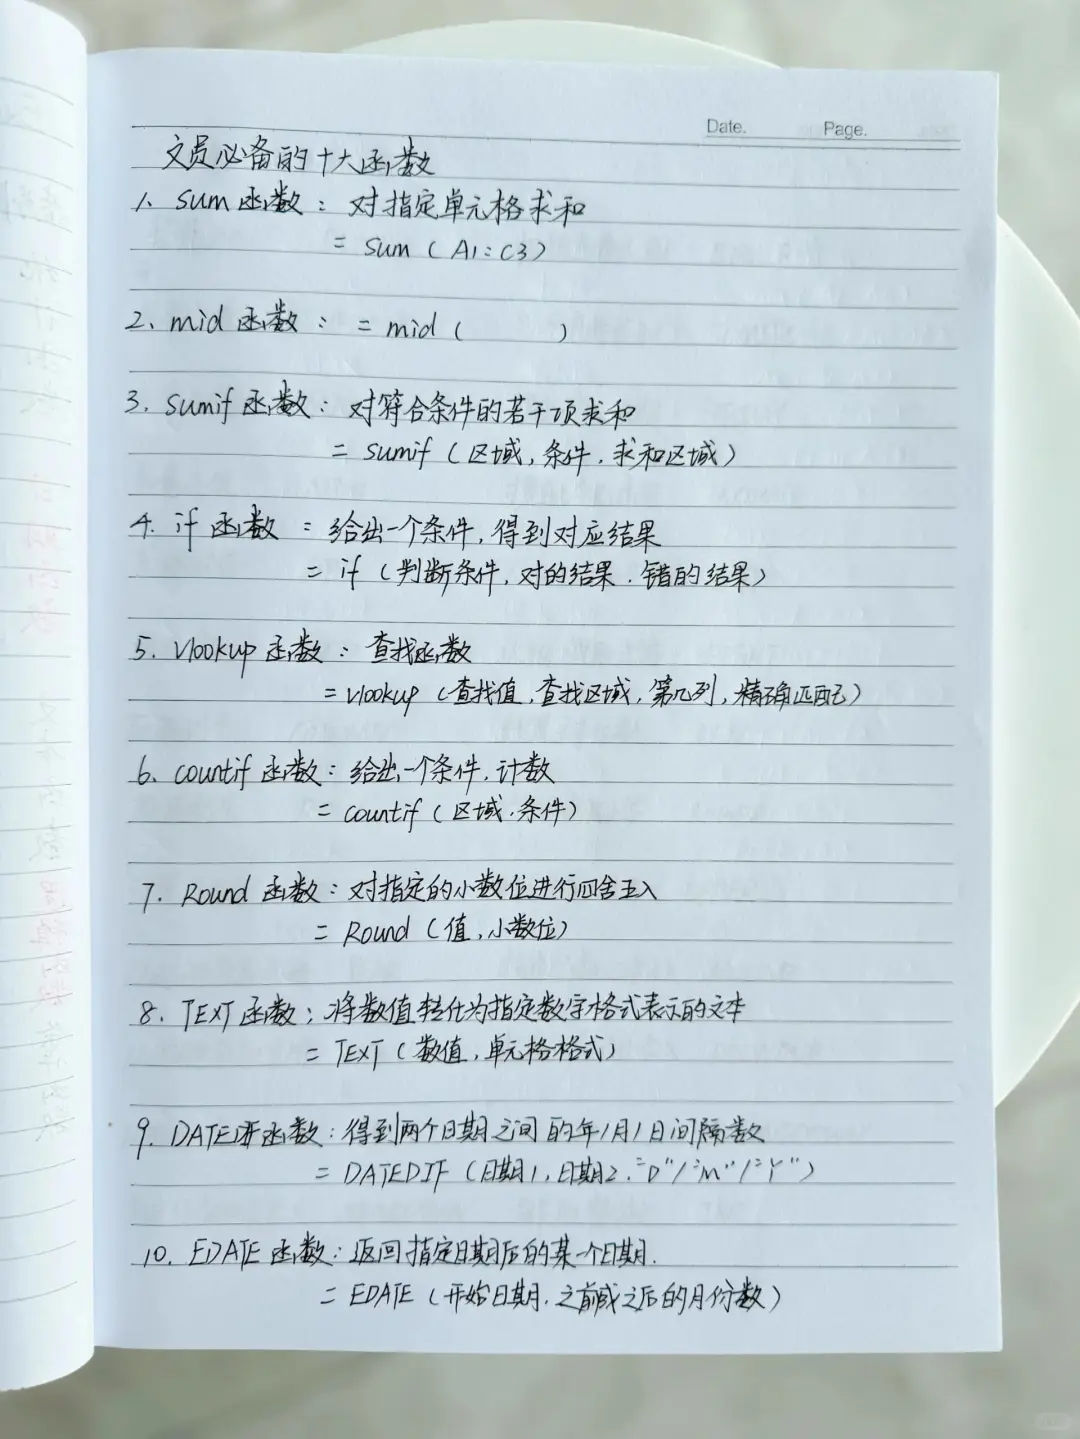 Date. Page.
文员必备的十大函数
1、sum函数：对指定单元格求和
= sum（A1:C3）
2、mid函数：= mid（ ）
3、sumif函数：对符合条件的若干项求和
= sumif（区域,条件,求和区域）
4、if函数：给出一个条件,得到对应结果
= if（判断条件,对的结果,错的结果）
5、vlookup函数：查找函数
= vlookup（查找值,查找区域,第几列,精确匹配）
6、countif函数：给出一个条件,计数
= countif（区域,条件）
7、Round函数：对指定的小数位进行四舍五入
= Round（值,小数位）
8、TEXT函数：将数值转化为指定数字格式表示的文本
= TEXT（数值,单元格格式）
9、函数：得到两个日期之间的年/月/日间隔数
= DATEDIF（日期1,日期2,"D"/"M"/"Y"）
10、EDATE函数：返回指定日期后的某一个日期.
= EDATE（开始日期,之前或之后的月份数）